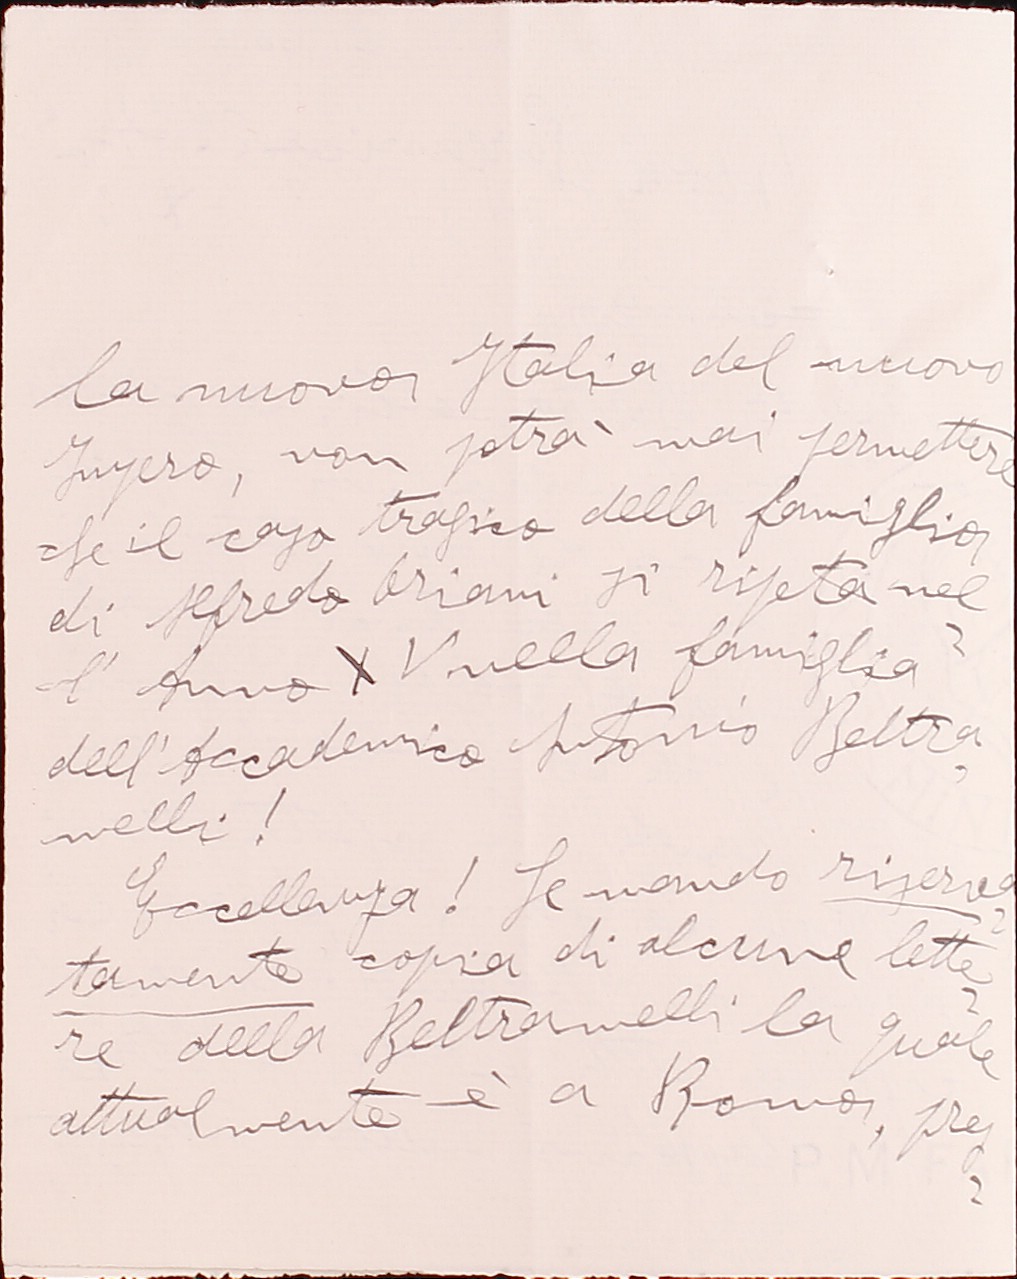 la nuova Italia del nuovo
Impero, non potrà mai permettere
che il caso tragico della famiglia
di Alfredo Oriani si ripeta nel
l'Anno XV nella famiglia
dell'Accademico Antonio Beltra
nelli!
Eccellenza! Le mando riserva
tamente copia di alcune lette
re della Beltramelli la quale
attualmente è a Roma, pres